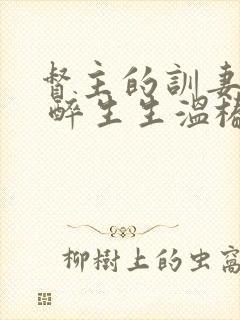 督主的訓妻
醉生生溫樁
柳樹上的虫窩